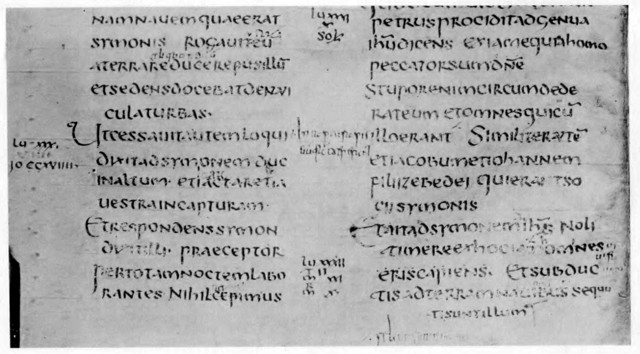 NAMNAUEMQUAEERAT
SYMONIS ROGAUITEŪ
ATERRAREDUCEREPUSILLŪ
ETSEDENSDOCEBATDENAUI
CULATURBAS·
lu xxx
UTCESSAUITAUTEMLOQUI
io ccxviiii
DIXITADSYMONEMDUC
INALTUM· ETLAXARETIA
UESTRAINCAPTURAM·
ETRESPONDENSSYMON
DIXITILLI· PRAECEPTOR
PERTOTAMNOCTEMLABO
RANTES NIHILCEPIMUS
lu xxxi
sol
PETRUSPROCIDITADGENUA
IHŪDICENS EXIAMEQUIAHOMO
PECCATORSUMDN̄E
STUPORENIMCIRCUMDEDE
RATEUM ETOMNESQUICŪ
ILLOERANT SIMILITERAUTĒ
ETIACOBUMETIOHANNEM
FILIIZEBEDEI QUIERANTSO
CIISYMONIS
ETAITADSYMONEMIHS̄ NOLI
TIMEREEXHOCIAM OMINES
ERISCAPIENS· ETSUBDUC
TISADTERRAMNAUIBUS SEQUU
TISUNTILLUM